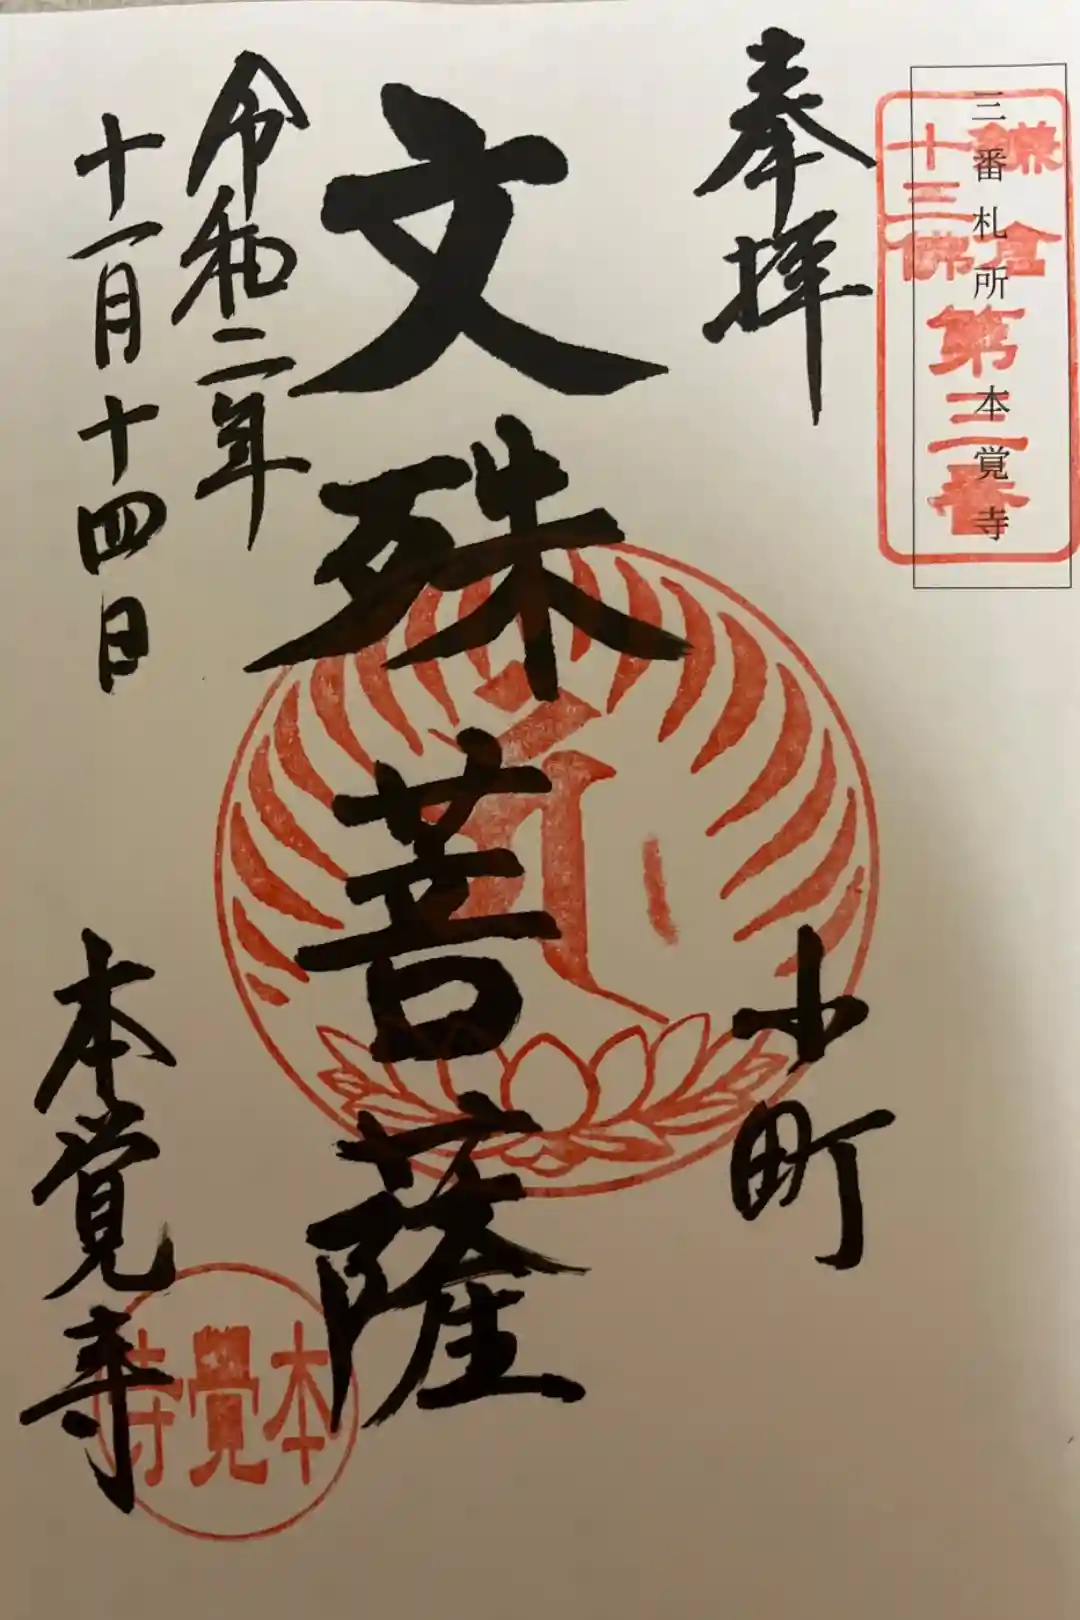 三番札所 本覚寺
鎌倉
十三佛
第三番
奉拝
小町
文殊菩薩
令和二年
十一月十四日
本覚寺
本覺寺